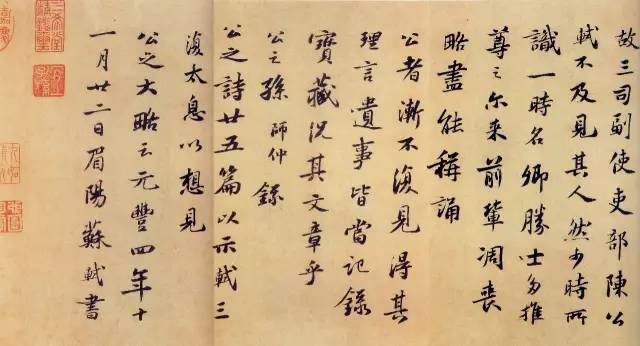 故三司副使吏部陳公
軾不及見其人然少時所
識一時名卿勝士多推
尊之尔来前輩凋喪
略盡能稱誦
公者漸不復見得其
理言遺事皆當記錄
寳藏況其文章乎
公之孫師仲錄
公之詩廿五篇以示軾三
復太息以想見
公之大略云元豐四年十
一月廿二日眉陽蘇軾書